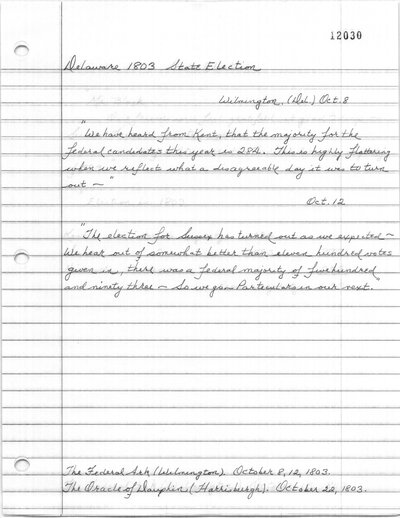 12030
Delaware 1803 State Election
Wilmington, (Del.) Oct. 8
"We have heard from Kent, that the majority for the
federal candidates this year is 284. This is highly flattering
when we reflect what a disagreeable day it was to turn
out—"
Oct. 12
"The election for Sussex has turned out as we expected—
We hear out of somewhat better than eleven hundred votes
given in, there was a federal majority of five hundred
and ninety three — So we gain Particulars in our next.
The Federal Ark (Wilmington). October 8, 12, 1803.
The Oracle of Dauphin (Harrisburgh). October 22, 1803.